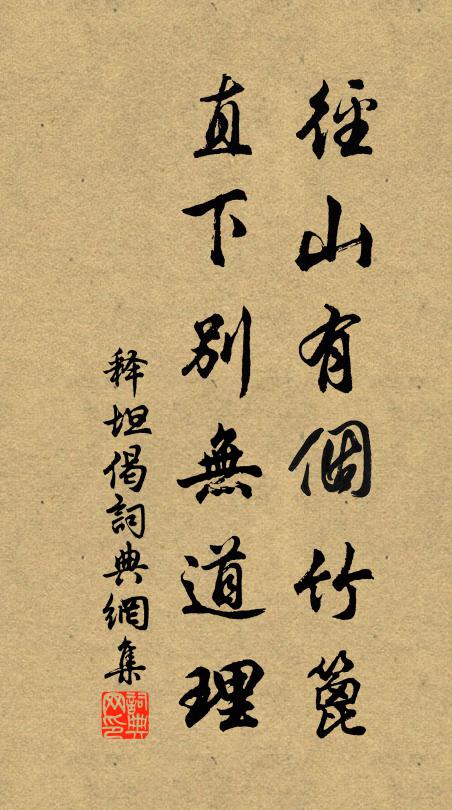 徑山有個竹篦
直下別無道理
释坦偈詞典網集
詞典
网印